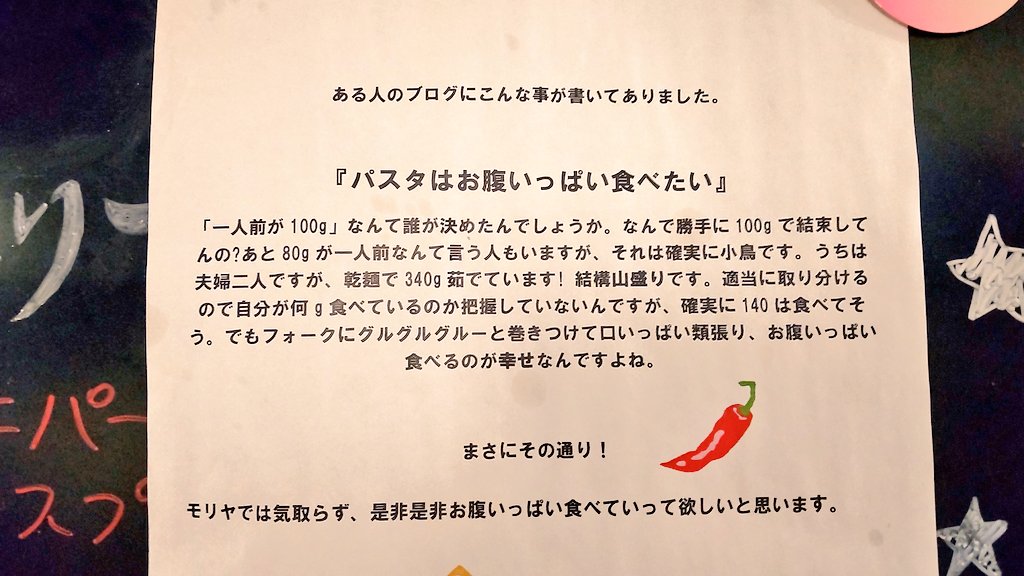 ある人のブログにこんな事が書いてありました。
『パスタはお腹いっぱい食べたい』
「一人前が 100g」なんて誰が決めたんでしょうか。なんで勝手に 100g で結束して
んの?あと 80g が一人前なんて言う人もいますが、それは確実に小鳥です。うちは
夫婦二人ですが、乾麺で 340g 茹でています! 結構山盛りです。適当に取り分ける
ので自分が何 g 食べているのか把握していないんですが、確実に 140 は食べてそ
う。でもフォークにグルグルグルーと巻きつけて口いっぱい頬張り、お腹いっぱい
食べるのが幸せなんですよね。
まさにその通り!
モリヤでは気取らず、是非是非お腹いっぱい食べていって欲しいと思います。
リー
ニパー
スプ